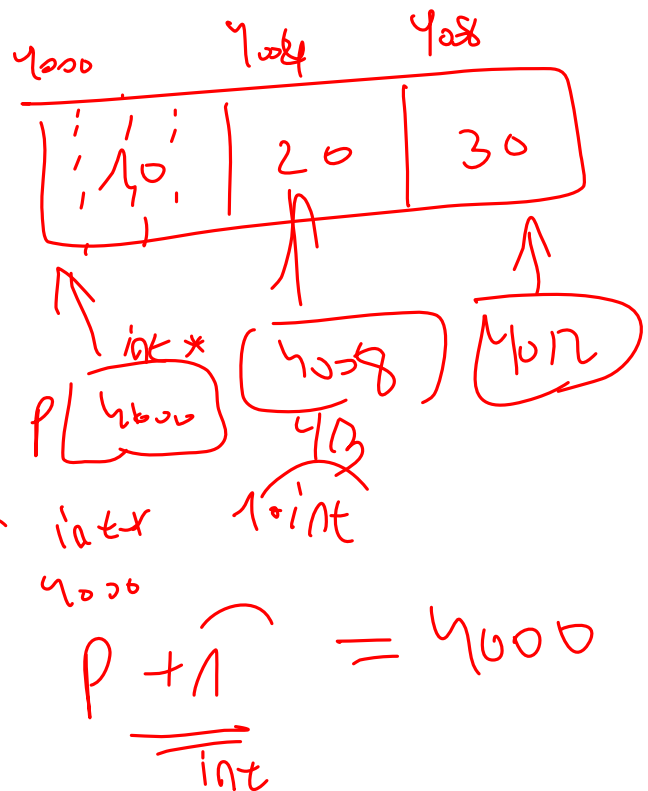 4000 4004 4008
10 20 30
int *
P 4000 4008 4012
4B
1 int
int*
4000
P + 1 = 4000
int